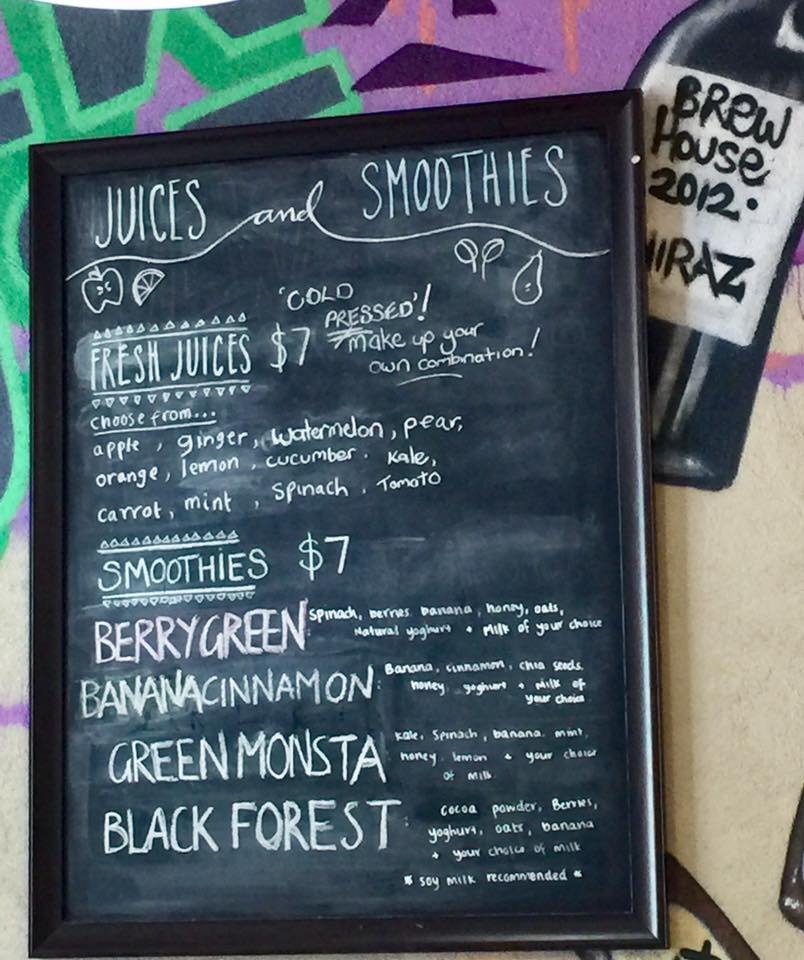 JUICES and SMOOTHIES
'COLD
PRESSED'!
FRESH JUICES $7
*make up your
own combination!
choose from...
apple, ginger, watermelon, pear,
orange, lemon, cucumber. Kale,
carrot, mint, spinach, Tomato
SMOOTHIES $7
BERRYGREEN: Spinach, berries, banana, honey, oats,
Natural yoghurt + Milk of your choice
BANANACINNAMON: Banana, cinnamon, chia seeds,
honey, yoghurt + Milk of
your choice
GREEN MONSTA Kale, Spinach, banana, mint,
honey, lemon + your choice
of milk
BLACK FOREST: Cocoa powder, Berries,
yoghurt, oats, banana
+ your choice of milk
* soy milk recommended *
BREW
HOUSE
2012.
HIRAZ